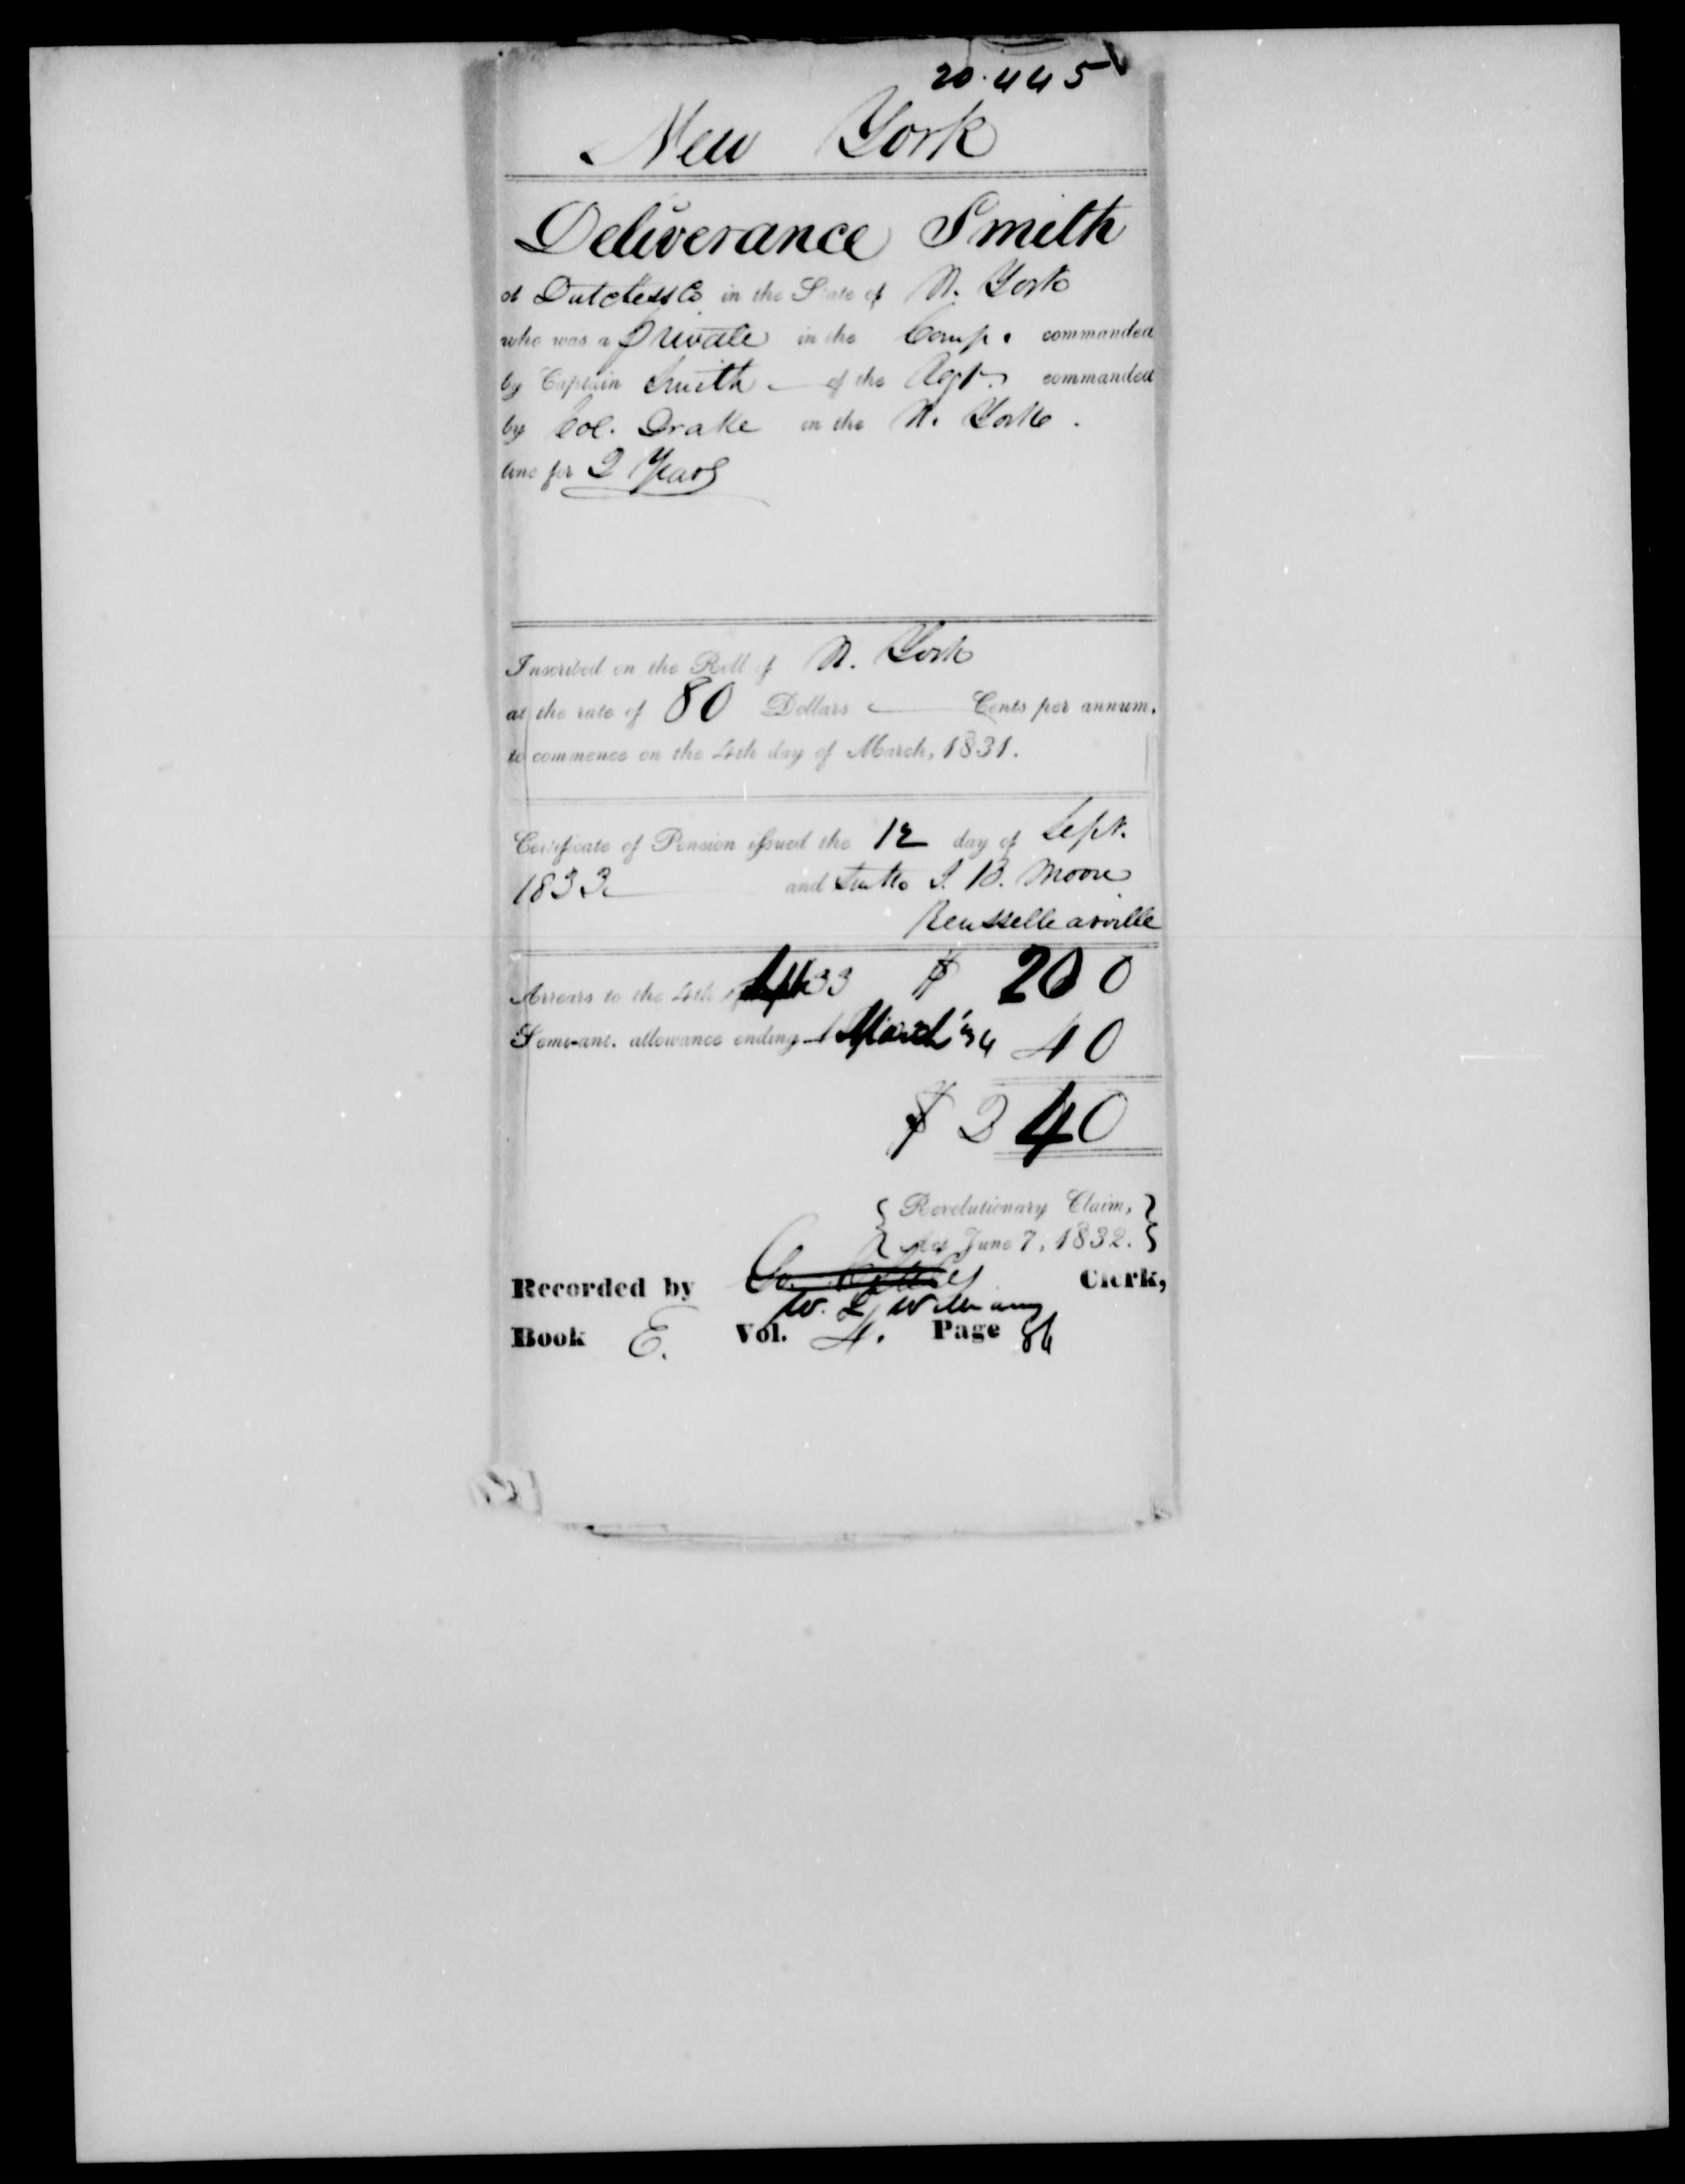 20.445
New York
Deliverance Smith
of Dutchess Co in the State of N. York
who was a private in the Comp. commanded
by Captain Smith of the Regt. commanded
by Col. Drake in the N. York
line for 2 Years
Inscribed on the Roll of N. York
at the rate of 80 Dollars — Cents per annum,
to commence on the 4th day of March, 1831.
Certificate of Pension issued the 12 day of Sept.
1833 and sent to I. B. Moore
Renssellearville
Arrears to the 4th Sept 33 $ 200
Semi-anl. allowance ending 4 March '34 40
$ 240
{ Revolutionary Claim, }
{ Act June 7, 1832. }
Recorded by Clerk,
W. L. Williams
Book E. Vol. 4. Page 86